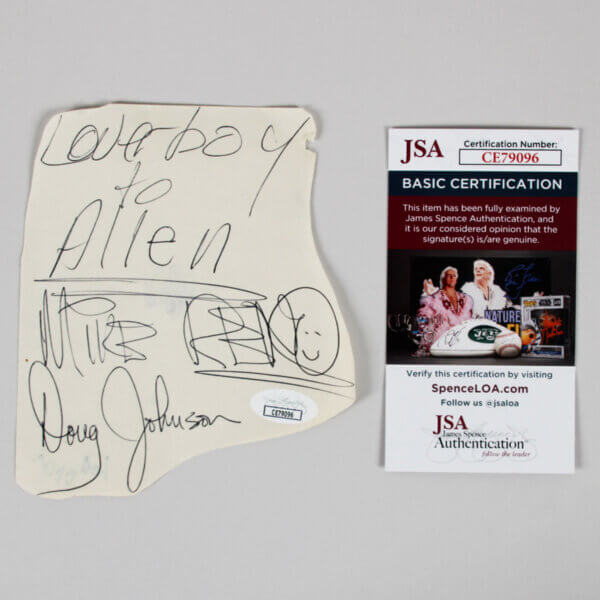 Loverboy
to
Allen
Mike Reno
Doug Johnson
CE79096
JSA
Certification Number:
CE79096
BASIC CERTIFICATION
This item has been fully examined by
James Spence Authentication, and
it is our considered opinion that the
signature(s) is/are genuine.
NATURE
Verify this certification by visiting
SpenceLOA.com
Follow us @jsaloa
JSA
James Spence
Authentication
follow the leader